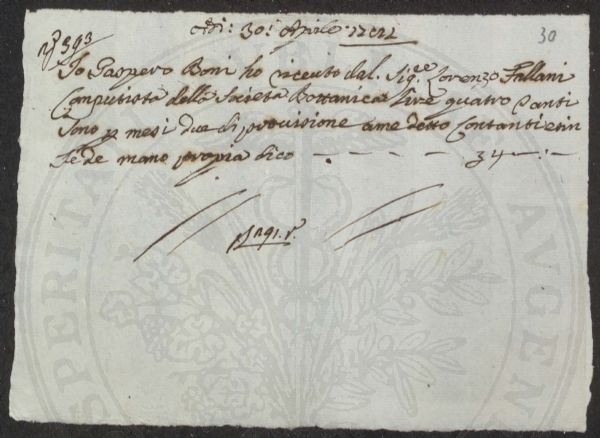 Adi: 30: Aprile:
30
N° 393
Io Gaspero Boni ho riceuto dal Sig:re Lorenzo Fallani
Computista della Società Bottanica lire quatro Contanti
sono p mesi due di provisione a me detto Contanti e in
fede mano propia dico — — — — — 34 — : —
SPERITA
AUGEN